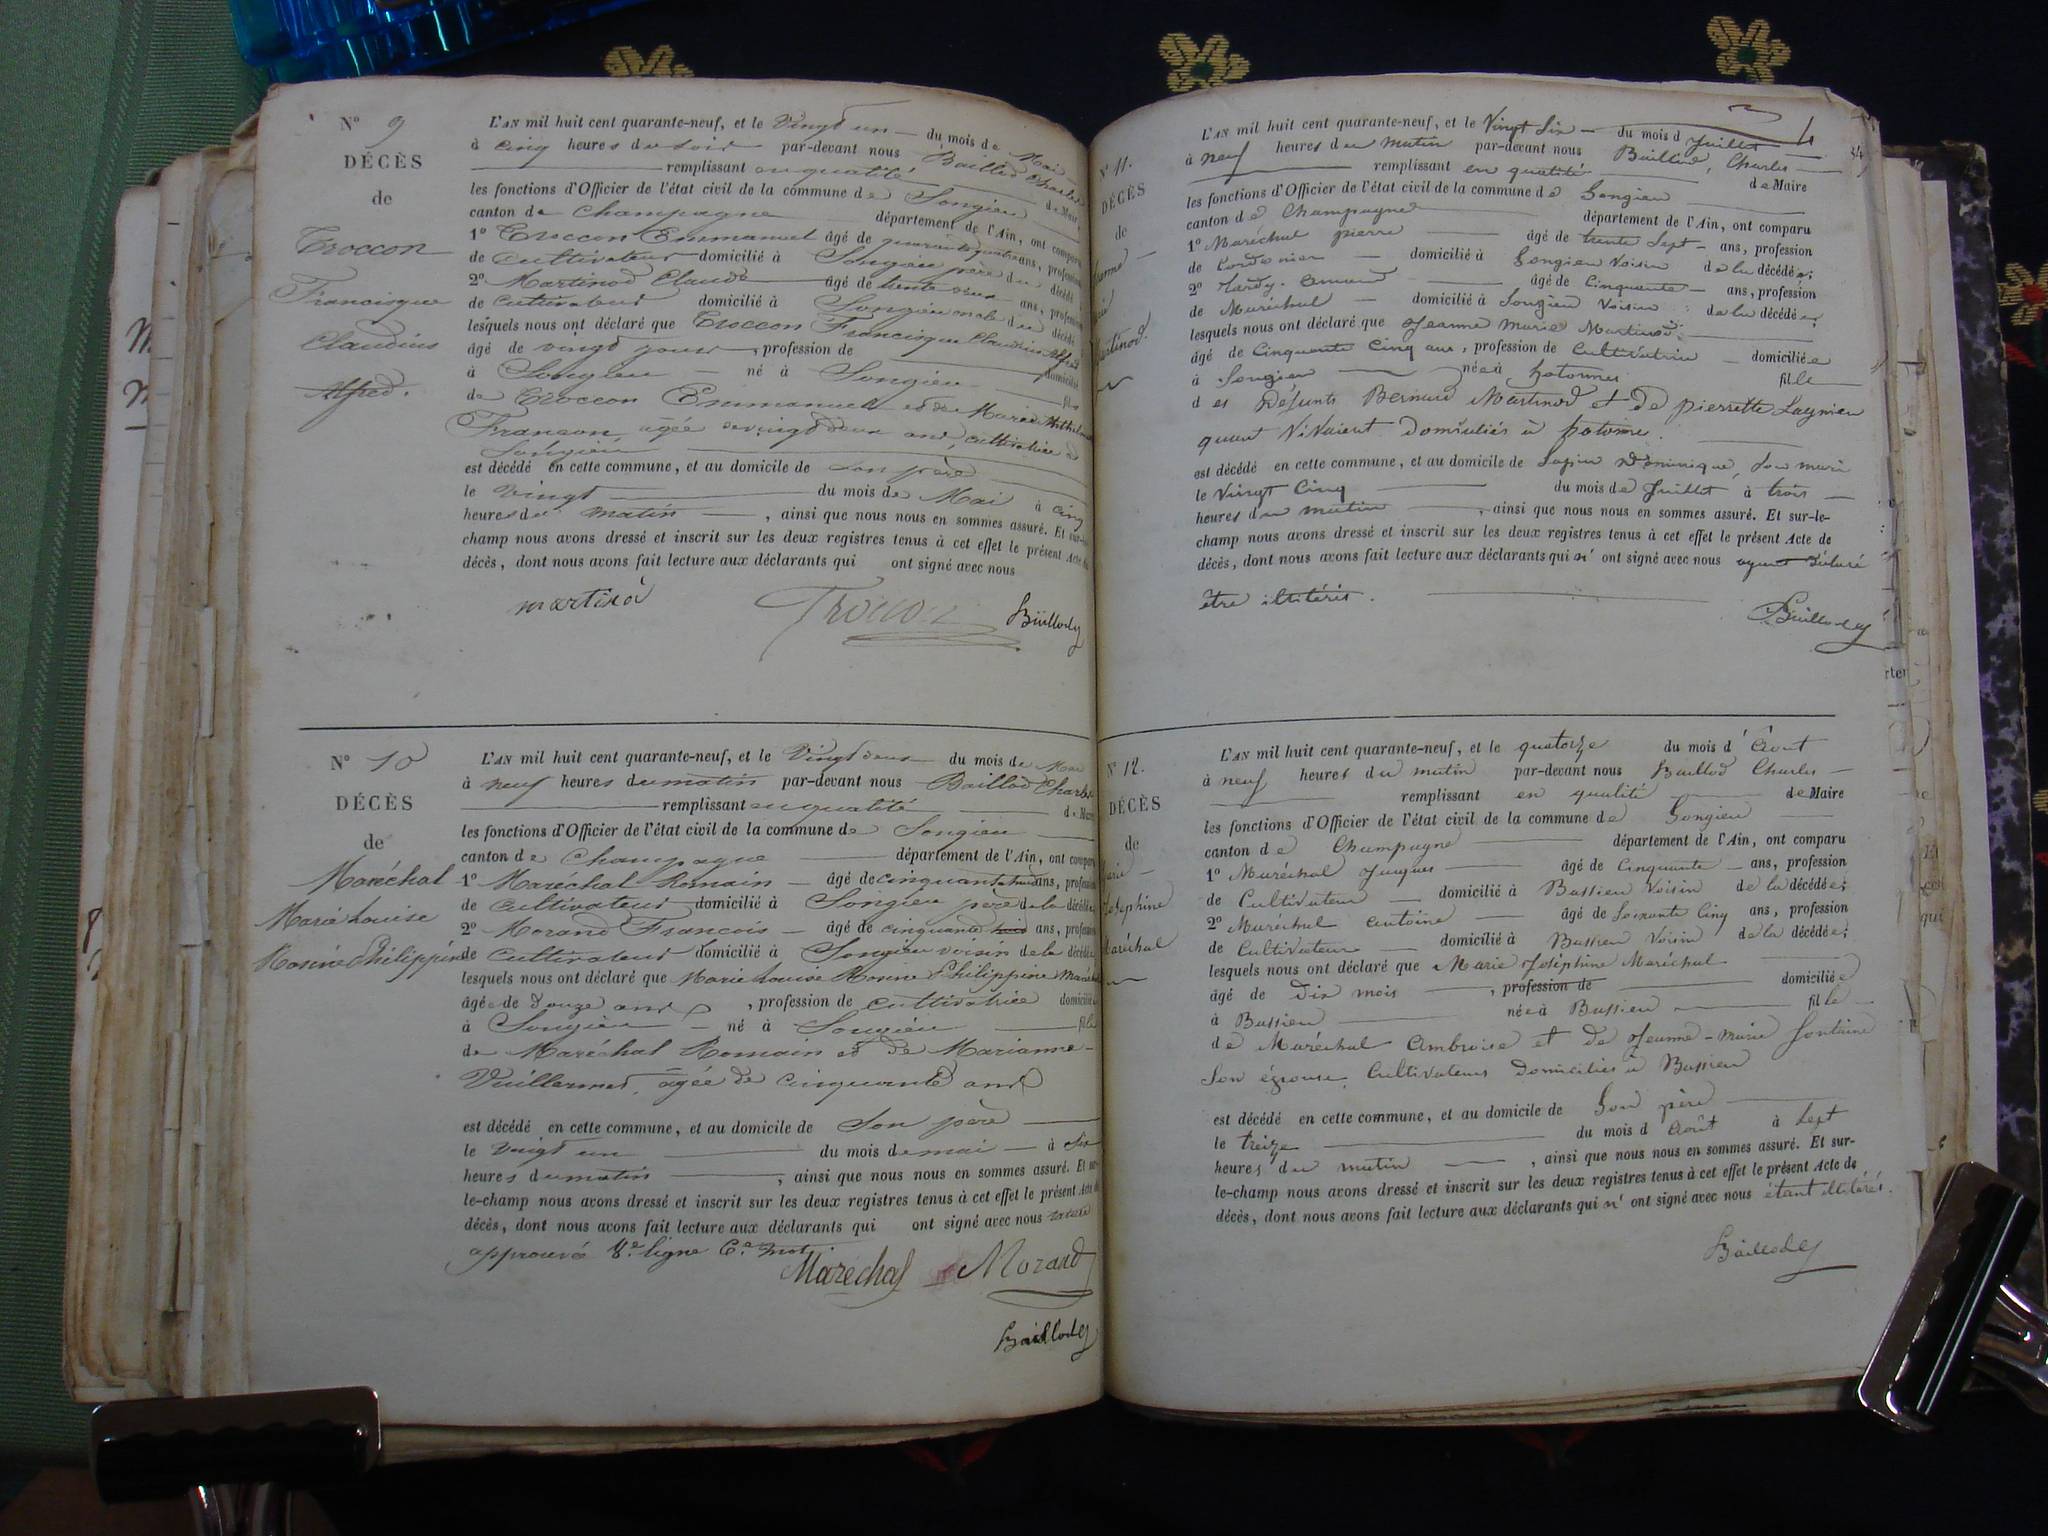 N° 9
DÉCÈS
de
Troccon
Francisque
Claudius
Alfred.
L'AN mil huit cent quarante-neuf, et le Vingt un du mois de Mai
à cinq heures du soir par-devant nous Baillod Charles
remplissant en qualité de Maire
les fonctions d'Officier de l'état civil de la commune de Songieu
canton de Champagne département de l'Ain, ont comparu
1° Troccon Emmanuel âgé de quarante quatre ans, profession
de Cultivateur domicilié à Songieu père du décédé
2° Martinod Claude âgé de trente deux ans, profession
de Cultivateur domicilié à Songieu oncle du décédé
lesquels nous ont déclaré que Troccon Francisque Claudius Alfred
âgé de vingt jours, profession de domicilié
à Songieu né à Songieu fils
de Troccon Emmanuel et de Marie
Francon âgée de vingt deux ans, cultivatrice à
Songieu
est décédé en cette commune, et au domicile de son père
le vingt du mois de Mai à cinq
heures du matin, ainsi que nous nous en sommes assuré. Et sur-le-
champ nous avons dressé et inscrit sur les deux registres tenus à cet effet le présent Acte de
décès, dont nous avons fait lecture aux déclarants qui ont signé avec nous
martinod Troccon Baillod
N° 10
DÉCÈS
de
Maréchal
Marie Louise
Philippine
L'AN mil huit cent quarante-neuf, et le Vingt deux du mois de Mai
à neuf heures du matin par-devant nous Baillod Charles
remplissant en qualité de Maire
les fonctions d'Officier de l'état civil de la commune de Songieu
canton de Champagne département de l'Ain, ont comparu
1° Maréchal Romain âgé de cinquante huit ans, profession
de Cultivateur domicilié à Songieu père de la décédée
2° Morand François âgé de cinquante ans, profession
de Cultivateur domicilié à Songieu voisin de la décédée
lesquels nous ont déclaré que Marie Louise Philippine Maréchal
âgée de douze ans, profession de cultivatrice domiciliée
à Songieu né à Songieu fille
de Maréchal Romain et de Marianne
Vuillermet, âgée de cinquante ans
est décédé en cette commune, et au domicile de Son père
le vingt un du mois de mai à six
heures du matin, ainsi que nous nous en sommes assuré. Et sur-
le-champ nous avons dressé et inscrit sur les deux registres tenus à cet effet le présent Acte de
décès, dont nous avons fait lecture aux déclarants qui ont signé avec nous
approuvé 8e ligne 6e mot
Maréchal Morand
Baillod
N° 11.
DÉCÈS
de
Martinod.
L'AN mil huit cent quarante-neuf, et le Vingt Six du mois d Juillet
à neuf heures du matin par-devant nous Baillod, Charles
remplissant en qualité de Maire
les fonctions d'Officier de l'état civil de la commune de Songieu
canton de Champagne département de l'Ain, ont comparu
1° Maréchal pierre âgé de trente Sept ans, profession
de Cordonier domicilié à Songieu Voisin de la décédée;
2° Tardy âgé de Cinquante ans, profession
de Maréchal domicilié à Songieu Voisin de la décédée;
lesquels nous ont déclaré que Jeanne Marie Martinod
âgé de Cinquante Cinq ans, profession de Cultivatrice domiciliée
à Songieu née à hotonnes fille
d es Défunts Bernard Martinod et de pierrette Laynieu
quant Vivaient Domiciliés à hotonne.
est décédé en cette commune, et au domicile de Lapin Dominique, Son mari
le Vingt Cinq du mois de Juillet à trois
heures du matin, ainsi que nous nous en sommes assuré. Et sur-le-
champ nous avons dressé et inscrit sur les deux registres tenus à cet effet le présent Acte de
décès, dont nous avons fait lecture aux déclarants qui n' ont signé avec nous ayant déclaré
être illitérés.
Baillod
N° 12.
DÉCÈS
de
Joséphine
Maréchal
L'AN mil huit cent quarante-neuf, et le quatorze du mois d' Août
à neuf heures du matin par-devant nous Baillod Charles
remplissant en qualité de Maire
les fonctions d'Officier de l'état civil de la commune de Songieu
canton de Champagne département de l'Ain, ont comparu
1° Maréchal Jacques âgé de Cinquante ans, profession
de Cultivateur domicilié à Bassieu Voisin de la décédée;
2° Maréchal Antoine âgé de Soixante Cinq ans, profession
de Cultivateur domicilié à Bassieu Voisin de la décédée;
lesquels nous ont déclaré que Marie Joséphine Maréchal
âgé de Dix mois, profession de domiciliée
à Bassieu née à Bassieu fille
de Maréchal Ambroise et de Jeanne-marie fontaine
Son épouse, Cultivateurs Domiciliés à Bassieu
est décédé en cette commune, et au domicile de Son père
le treize du mois d Août à Sept
heures du matin, ainsi que nous nous en sommes assuré. Et sur-
le-champ nous avons dressé et inscrit sur les deux registres tenus à cet effet le présent Acte de
décès, dont nous avons fait lecture aux déclarants qui n' ont signé avec nous étant illitérés.
Baillod